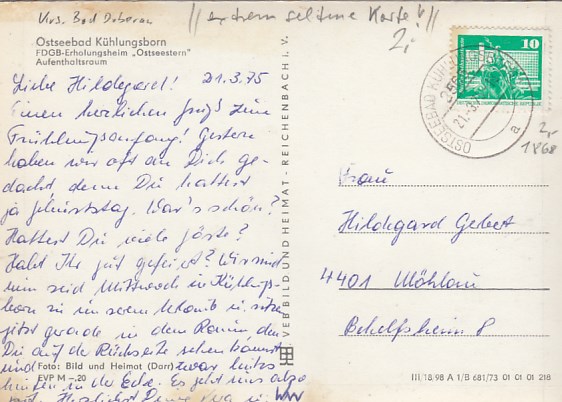 Krs. Bad Doberan
//extrem seltene Karte!//
2,-
Ostseebad Kühlungsborn
FDGB-Erholungsheim „Ostseestern"
Aufenthaltsraum
10
OSTSEEBAD KÜHLUNGSBORN
2565
21.-3.
a
2,-
1868
Liebe Hildegard! 21.3.75
Einen herzlichen Gruß zum
Frühlingsanfang! Gestern
haben wir oft an Dich ge-
dacht, denn Du hattest
ja Geburtstag. War's schön?
Hattest Du viele Gäste?
Habt Ihr gut gefeiert? Wir sind
nun seit Mittwoch in Kühlungs-
born zu unserem Urlaub u. sitzen
jetzt gerade in dem Raum den
Du auf der Rückseite sehen kannst
und zwar links
hinten in der Ecke. Es geht uns also
gut. Herzlichst Deine
Frau
Hildegard Gebert
4401 Möhlau
Behelfsheim 8
VEB BILD UND HEIMAT · REICHENBACH I. V.
Foto: Bild und Heimat (Dorr)
EVP M –.20
III/18/98 A 1/B 681/73 01 01 01 218